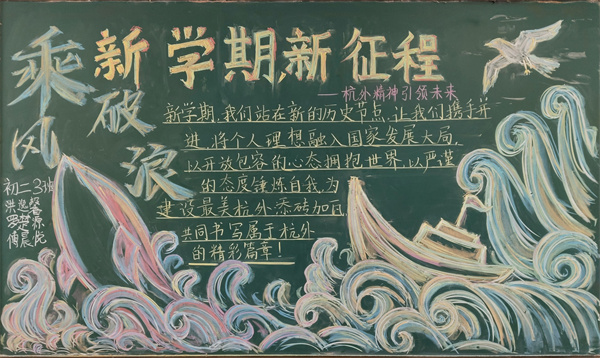 乘风
破浪
新学期,新征程
——杭外精神引领未来
新学期,我们站在新的历史节点,让我们携手并
进,将个人理想融入国家发展大局,
以开放包容的心态拥抱世界,以严谨
的态度锤炼自我,为
建设最美杭外添砖加瓦,
共同书写属于杭外
的精彩篇章!
初二3班